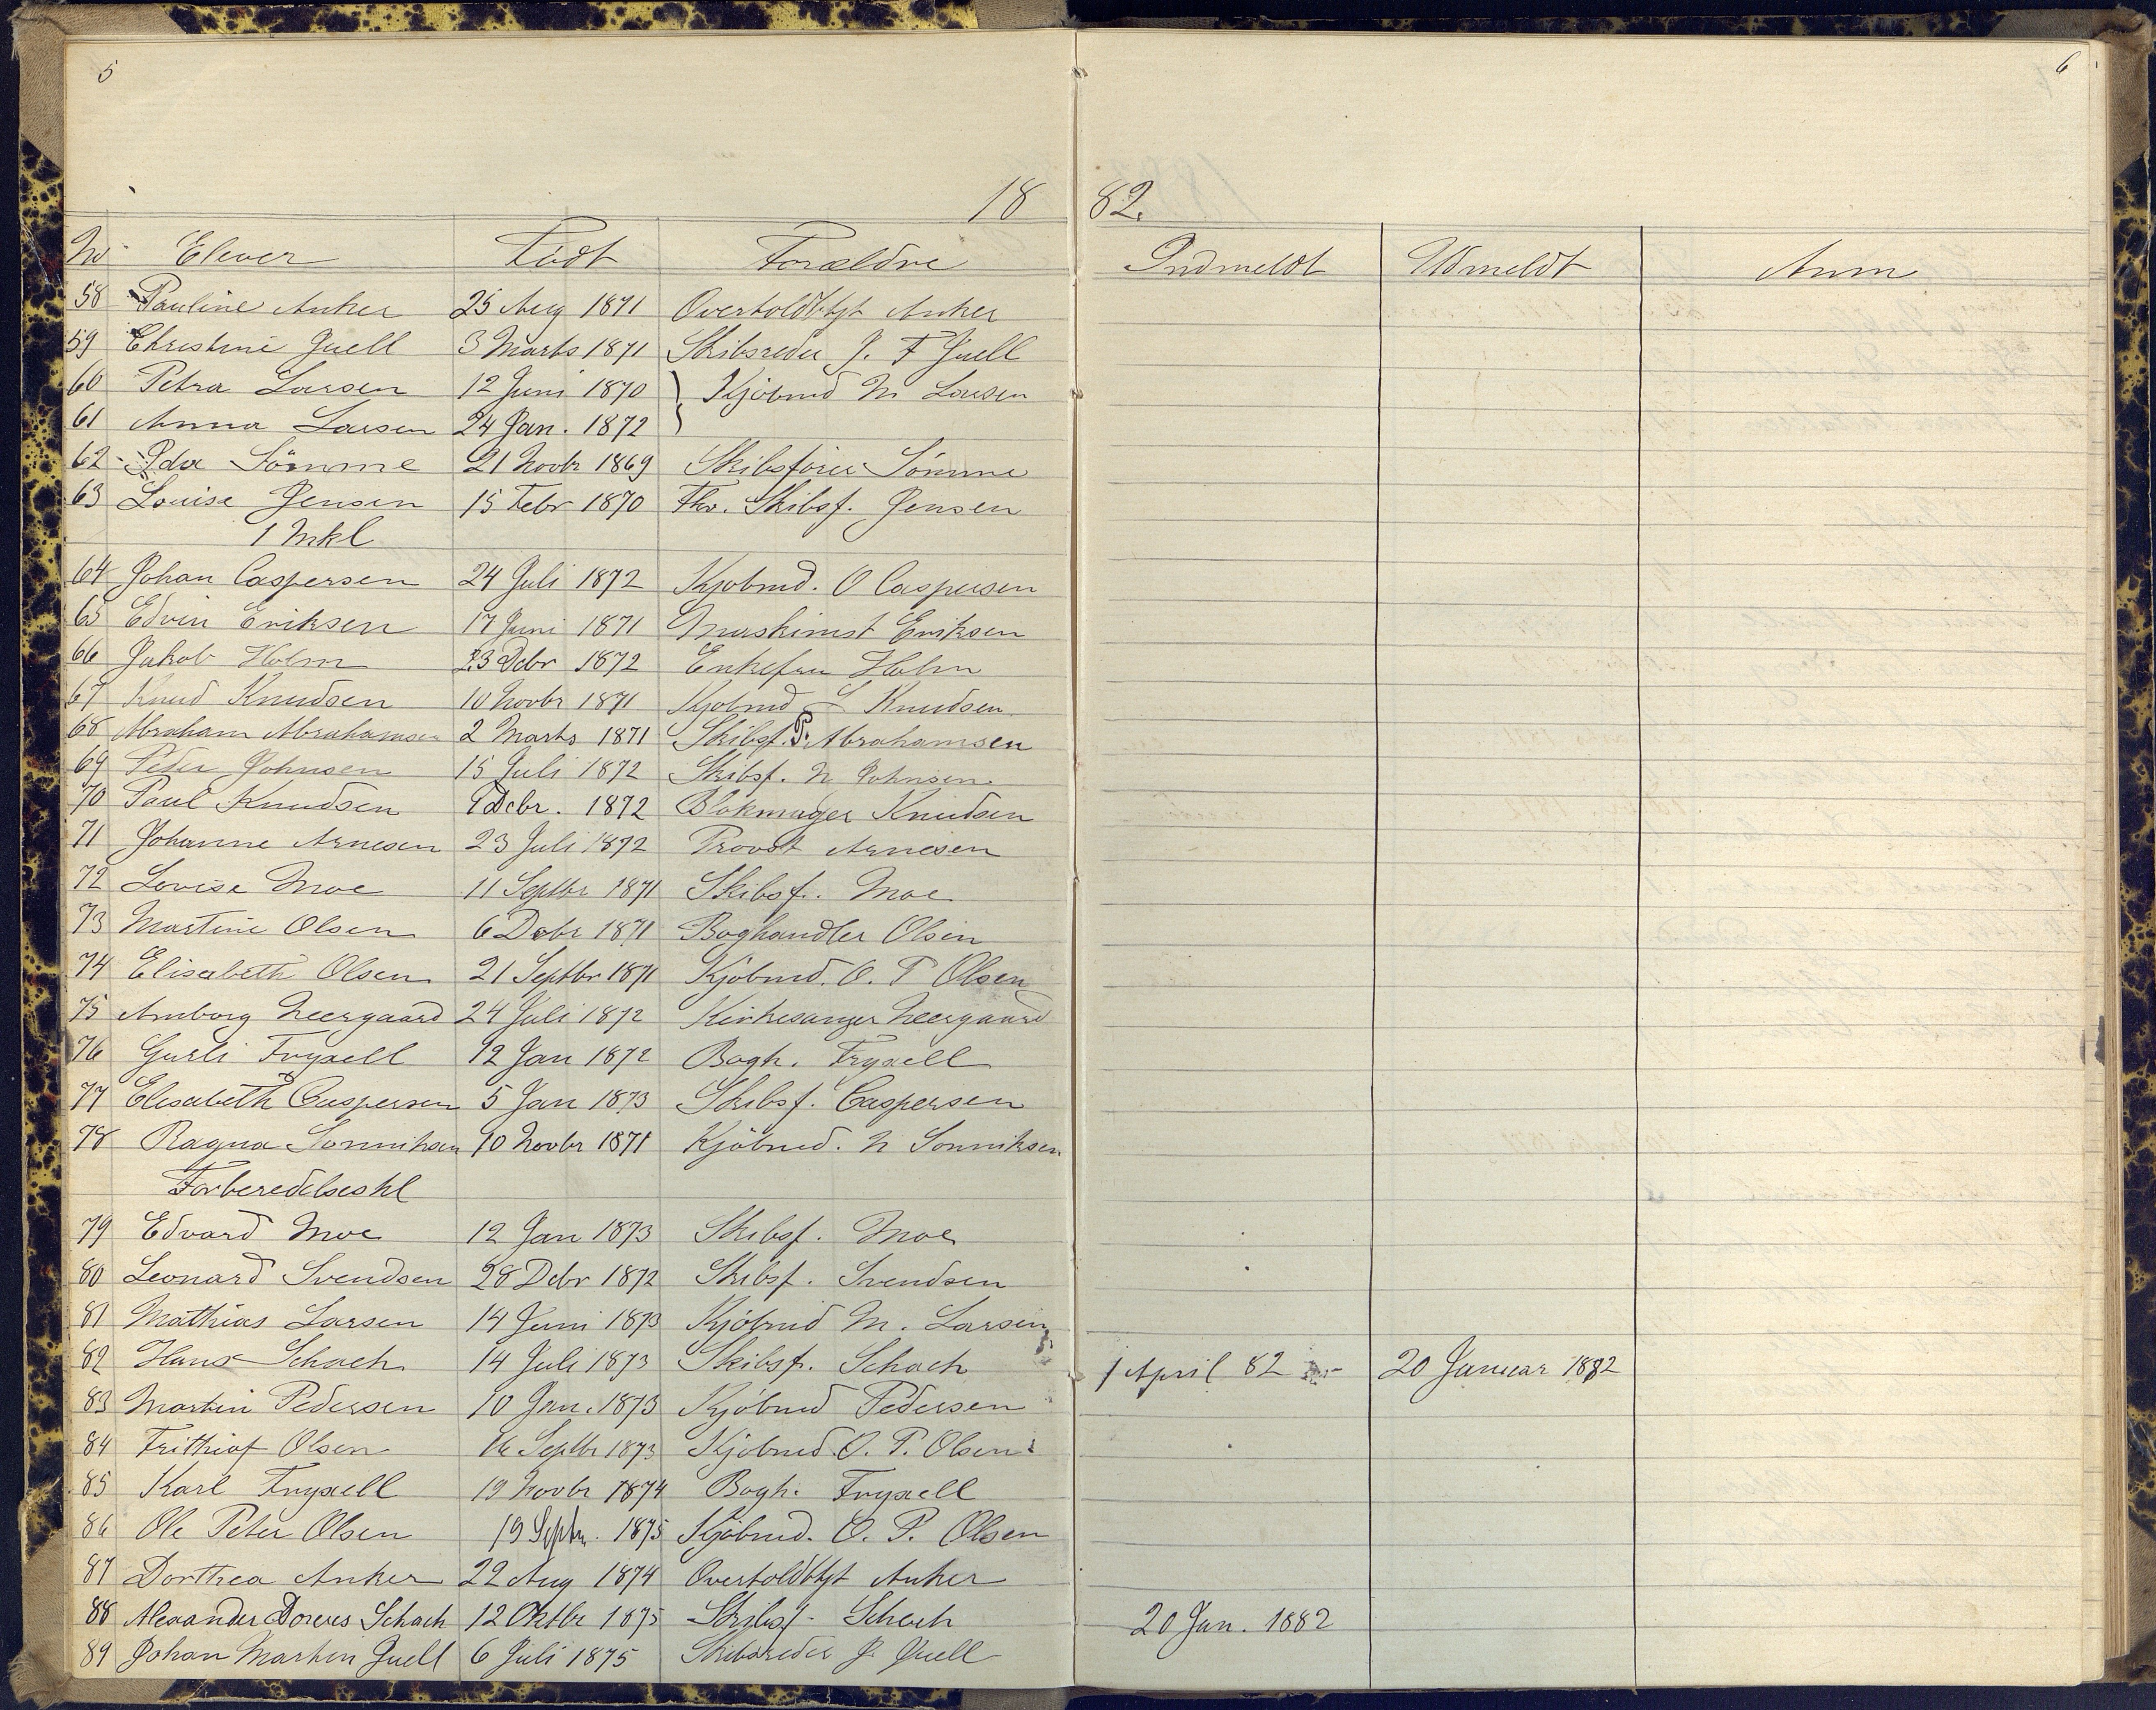 5
6
18 82.
No Elever Födt Forældre Indmeldt Udmeldt Anm
58 Pauline Anker 25 Aug 1871 Overtoldbtjt Anker
59 Christine Juell 3 Marts 1871 Skibsreder J. F Juell
60 Petra Larsen 12 Juni 1870 } Kjöbmd M Larsen
61 Anna Larsen 24 Jan. 1872
62 Ida Sömme 21 Novbr 1869 Skibsförer Sömme
63 Louise Jensen 15 Febr 1870 Fhv. Skibsf. Jensen
1 Mkl
64 Johan Caspersen 24 Juli 1872 Kjobmd. O Caspersen
65 Edvin Eriksen 17 Juni 1871 Maskinist Eriksen
66 Jakob Holm 23 Debr 1872 Enkefru Holm
67 Knud Knudsen 10 Novbr 1871 Kjobmd S Knudsen
68 Abraham Abrahamsen 2 Marts 1871 Skibsf. P. Abrahamsen
69 Peder Johnsen 15 Juli 1872 Skibsf. N Johnsen
70 Paul Knudsen 9 Debr. 1872 Blokmager Knudsen
71 Johanne Arnesen 23 Juli 1872 Provst Arnesen
72 Lovise Moe 11 Septbr 1871 Skibsf. Moe
73 Martine Olsen 6 Debr 1871 Boghandler Olsen
74 Elisabeth Olsen 21 Septbr 1871 Kjöbmd. O. P Olsen
75 Arnborg Neergaard 24 Juli 1872 Kirkesanger Neergaard
76 Gurli Fryxell 12 Jan 1872 Bogh. Fryxell
77 Elisabeth Caspersen 5 Jan 1873 Skibsf. Caspersen
78 Ragna Sonniksen 10 Novbr 1871 Kjöbmd. N Sonniksen
Forberedelseskl
79 Edvard Moe 12 Jan 1873 Skibsf. Moe
80 Leonard Svendsen 28 Debr 1872 Skibsf. Svendsen
81 Mathias Larsen 14 Juni 1873 Kjöbmd M. Larsen
82 Hans Schach 14 Juli 1873 Skibsf. Schach 1 April 82 20 Januar 1882
83 Martin Pedersen 10 Jan. 1873 Kjöbmd Pedersen
84 Frithiof Olsen 16 Septbr 1873 Kjöbmd O. P. Olsen
85 Karl Fryxell 19 Novbr 1874 Bogh. Fryxell
86 Ole Peter Olsen 19 Septbr. 1875 Kjöbmd. O. P. Olsen
87 Dorthea Anker 22 Aug 1874 Overtoldbtjt Anker
88 Alexander Schach 12 Oktbr 1875 Skibsf. Schach 20 Jan. 1882
89 Johan Martin Juell 6 Juli 1875 Skibsreder J. Juell